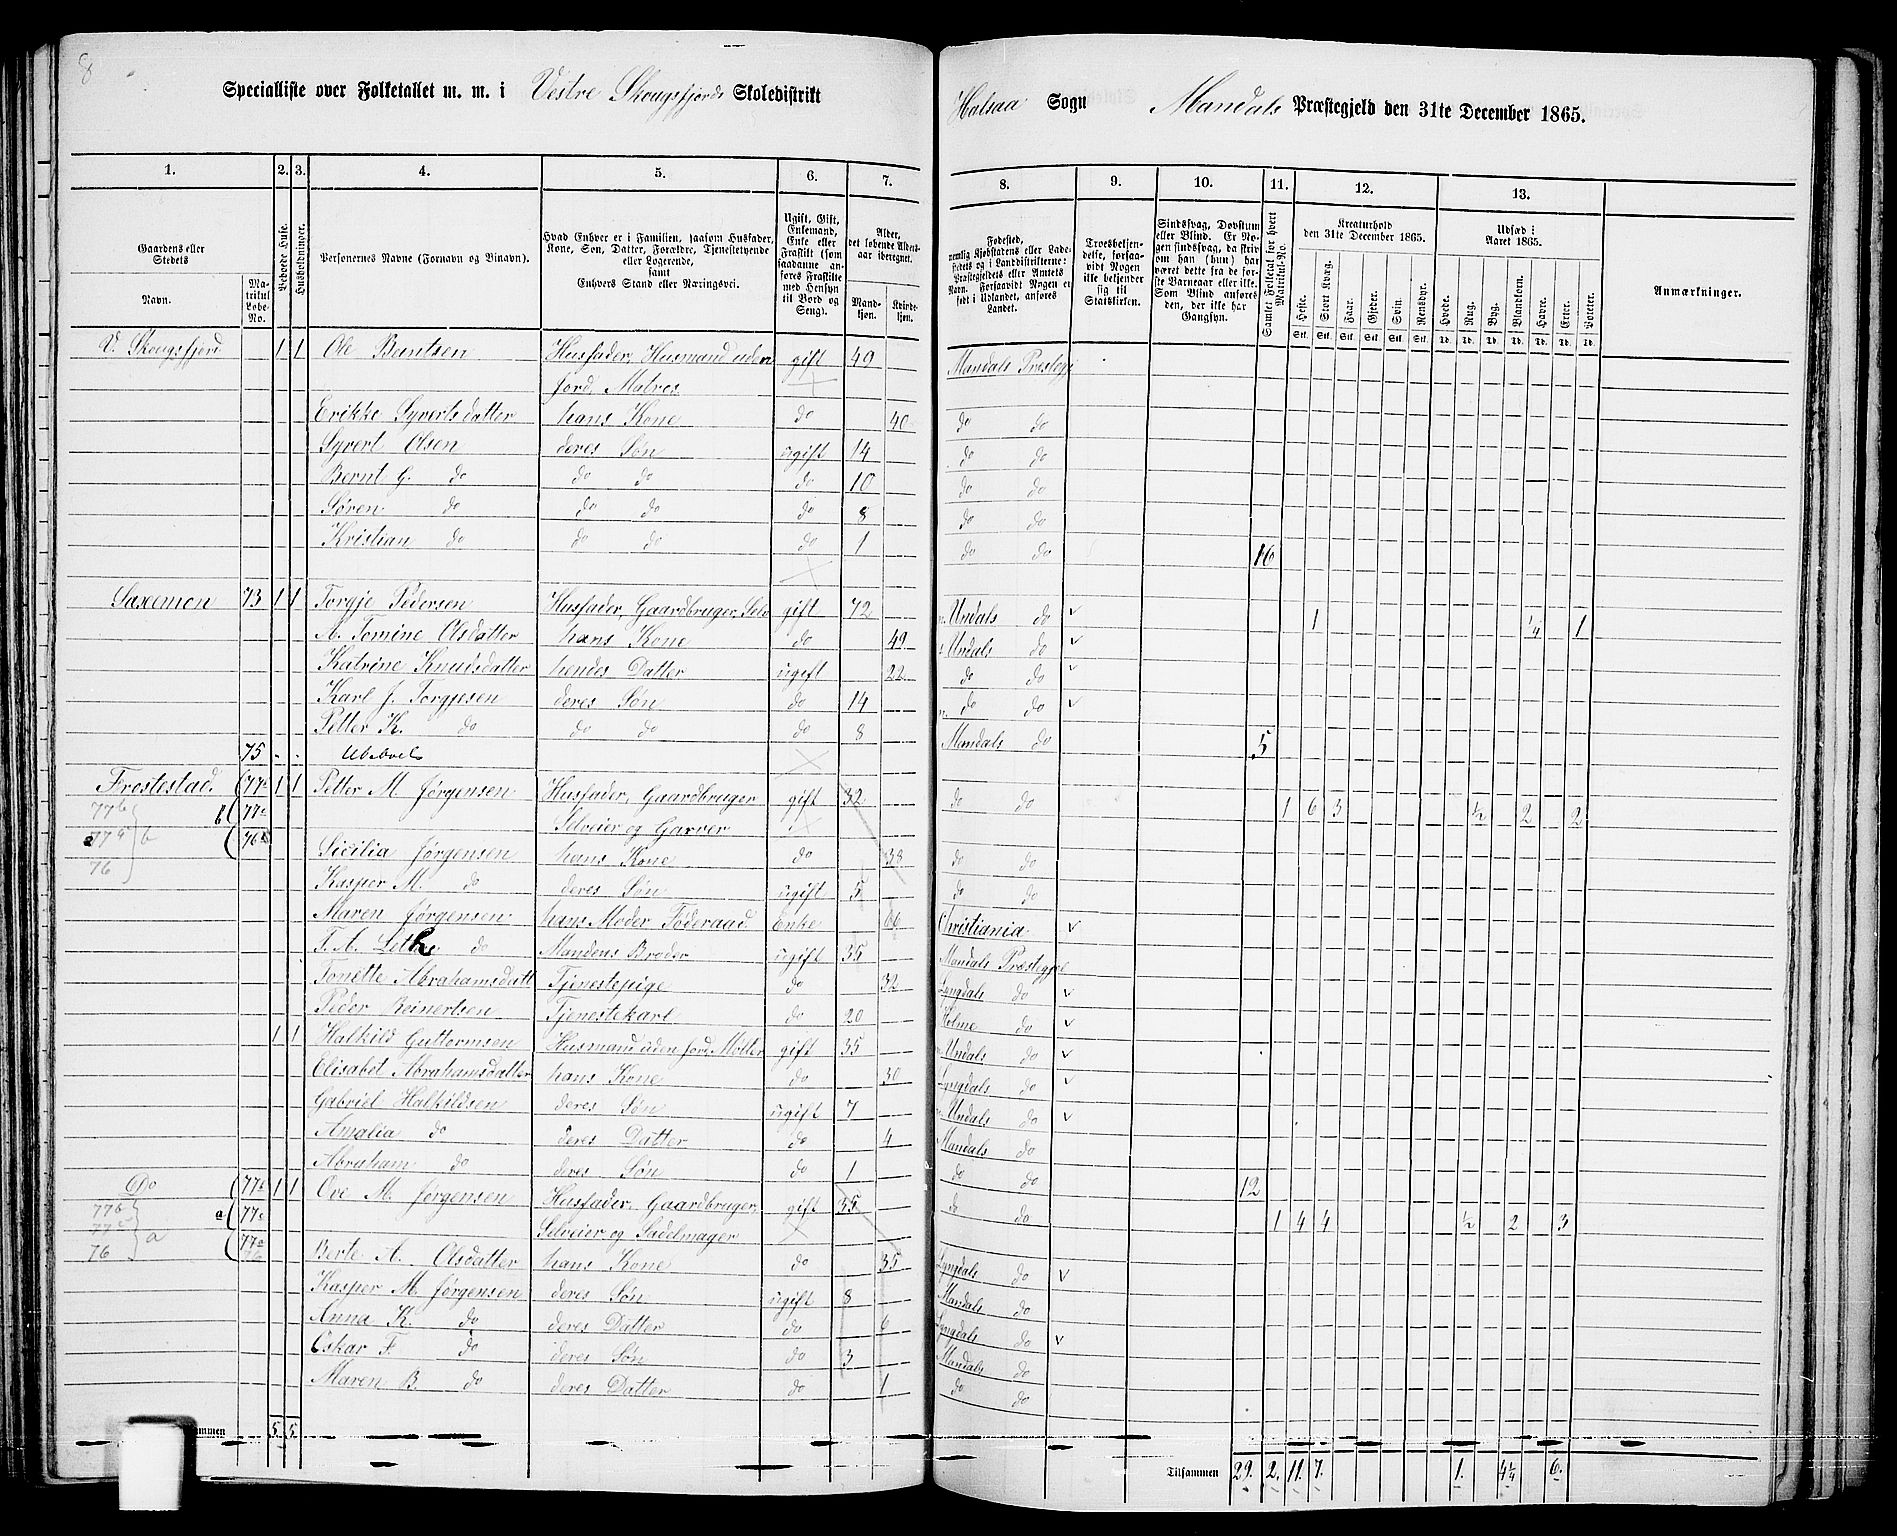 8
Specialliste over Folketallet m. m. i Vestre Skougsfjords Skoledistrikt
Halsaa Sogn Mandals Præstegjeld den 31te December 1865.
1. 2. 3. 4. 5. 6. 7. 8. 9. 10. 11. 12. 13.
Gaardens eller Stedets
Navn.
Matrikul Løbe-No.
Beboede Huse.
Husholdninger.
Personernes Navne (Fornavn og Binavn).
Hvad Enhver er i Familien, saasom Husfader, Kone, Søn, Datter, Forældre, Tjenestetyende eller Logerende,
samt
Enhvers Stand eller Næringsvei.
Ugift, Gift, Enkemand, Enke eller Fraskilt (som saadanne anføres Fraskilte med Hensyn til Bord og Seng).
Alder, det løbende Aldersaar iberegnet.
Mandkjøn.
Kvindekjøn.
Fødested,
nemlig Kjøbstadens eller Ladestedets og i Landdistrikterne: Præstegjeldets eller Amtets Navn. Forsaavidt Nogen er født i Udlandet, anføres Landet.
Troesbekjendelse, forsaavidt Nogen ikke bekjender sig til Statskirken.
Sindssvag, Døvstum eller Blind. Er Nogen sindssvag, da skrives om han (hun) har været dette fra de første Barneaar eller ikke. Som Blind anføres den, der ikke har Gangsyn.
Samlet Folketal for hvert Matrikul-No.
Kreaturhold den 31te December 1865.
Heste. Stort Kvæg. Faar. Gjeder. Svin. Rensdyr.
Stk. Stk. Stk. Stk. Stk. Stk.
Udsæd i Aaret 1865.
Hvede. Rug. Byg. Blandkorn. Havre. Erter. Poteter.
Td. Td. Td. Td. Td. Td. Td.
Anmærkninger.
V. Skougsfjord 1 1 Ole Berntsen Husfader, Husmand uden gift 49 Mandals Prestegj
Jord, Matros
Erikke Syvertsdatter hans Kone do 40 do do
Syvert Olsen deres Søn ugift 14 do do
Bernt G. do do do do 10 do do
Søren do do do do 8 do do
Kristian do do do do 1 do do 16
73 1 1 Torgje Pedersen Husfader, Gaardbruger, Selv gift 72 Undals do 1 1/4 1
A. Tomine Olsdatter hans Kone do 49 Undals do
Katrine Knudsdatter hendes Datter ugift 22 do do
Karl J. Torgjesen deres Søn do 14 do do
Petter K. do do do do 8 Mandals do 5
75 - - Ubeboet
Frostestad 77 1 1 Petter M. Jørgensen Husfader, Gaardbruger gift 32 do do 1 6 3 1/2 2 2
77b b 77c Selveier og Garver
77a b 76
76 Sicilia Jørgensen hans Kone do 38 do do
Kasper M. do deres Søn ugift 5 do do
Maren Jørgensen hans Moder Føderaad Enke 66 Christiania
do Mandens Broder ugift 35 Mandals Præstegjel
Tonette Abrahamsdatt Tjenestepige do 32 Lyngdals do
Peder Reinertsen Tjenestekarl do 20 Holme do
1 1 Halkild Guttormsen Husmand uden Jord, gift 35 Undals do
Elisabet Abrahamsdatter hans Kone do 30 Lyngdals do
Gabriel Halkildsen deres Søn ugift 7 Undals do
Amalia do deres Datter do 4 Mandals do
Abraham do deres Søn do 1 do do 12
Do 77 1 1 Ove M. Jørgensen Husfader, Gaardbruger, gift 35 do do 1 4 4 1/2 2 3
77b a 77c Selveier og Sadelmager
77c a 77a
76 76 Berte A. Olsdatter hans Kone do 35 Lyngdals do
Kasper M. Jørgensen deres Søn ugift 8 Mandals do
Anna K. do deres Datter do 6 Lyngdals do
Oskar F. do deres Søn do 3 Mandals do
Maren B. do deres Datter do 1 do do
mmen 5 5
Tilsammen 29. 2. 11. 7. 1. 4 1/4 6.